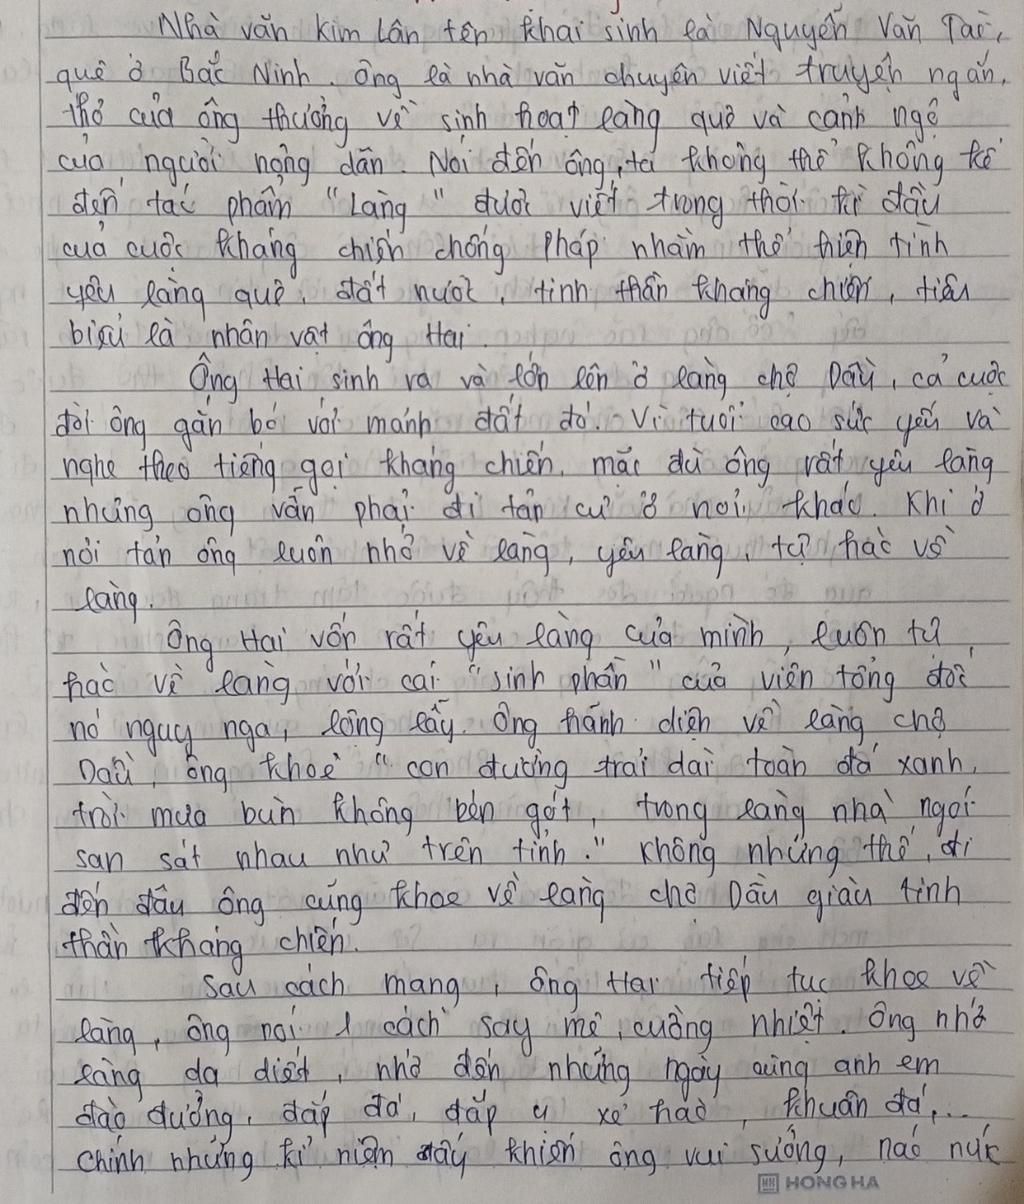 Nhà văn Kim Lân tên khai sinh là Nguyễn Văn Tài,
quê ở Bắc Ninh. Ông là nhà văn chuyên viết truyện ngắn,
thơ của ông thường về sinh hoạt làng quê và cảnh ngộ
của người nông dân. Nói đến ông, ta không thể không kể
đến tác phẩm "Làng" được viết trong thời kì đầu
của cuộc kháng chiến chống Pháp nhằm thể hiện tình
yêu làng quê, đất nước, tinh thần kháng chiến, tiêu
biểu là nhân vật ông Hai.
Ông Hai sinh ra và lớn lên ở làng chợ Dầu, cả cuộc
đời ông gắn bó với mảnh đất đó. Vì tuổi cao sức yếu và
nghe theo tiếng gọi kháng chiến, mặc dù ông rất yêu làng
nhưng ông vẫn phải đi tản cư ở nơi khác. Khi ở
nơi tản ông luôn nhớ về làng, yêu làng, tự hào về
làng.
Ông Hai vốn rất yêu làng của mình, luôn tự
hào về làng với cái "sinh phần" của viên tổng đốc
nó nguy nga, lộng lẫy. Ông hãnh diện về làng chợ
Dầu, ông khoe "con đường trải dài toàn đá xanh,
trời mưa bùn không bén gót, trong làng nhà ngói
san sát nhau như trên tỉnh." Không những thế, đi
đến đâu ông cũng khoe về làng chợ Dầu giàu tinh
thần kháng chiến.
Sau cách mạng, ông Hai tiếp tục khoe về
làng, ông nói 1 cách say mê, cuồng nhiệt. Ông nhớ
làng da diết, nhớ đến những ngày cùng anh em
đào đường, đắp đá, đắp ụ xẻ hào, khuân đá,...
chính những kỉ niệm đấy khiến ông vui sướng, náo nức
HONG HA